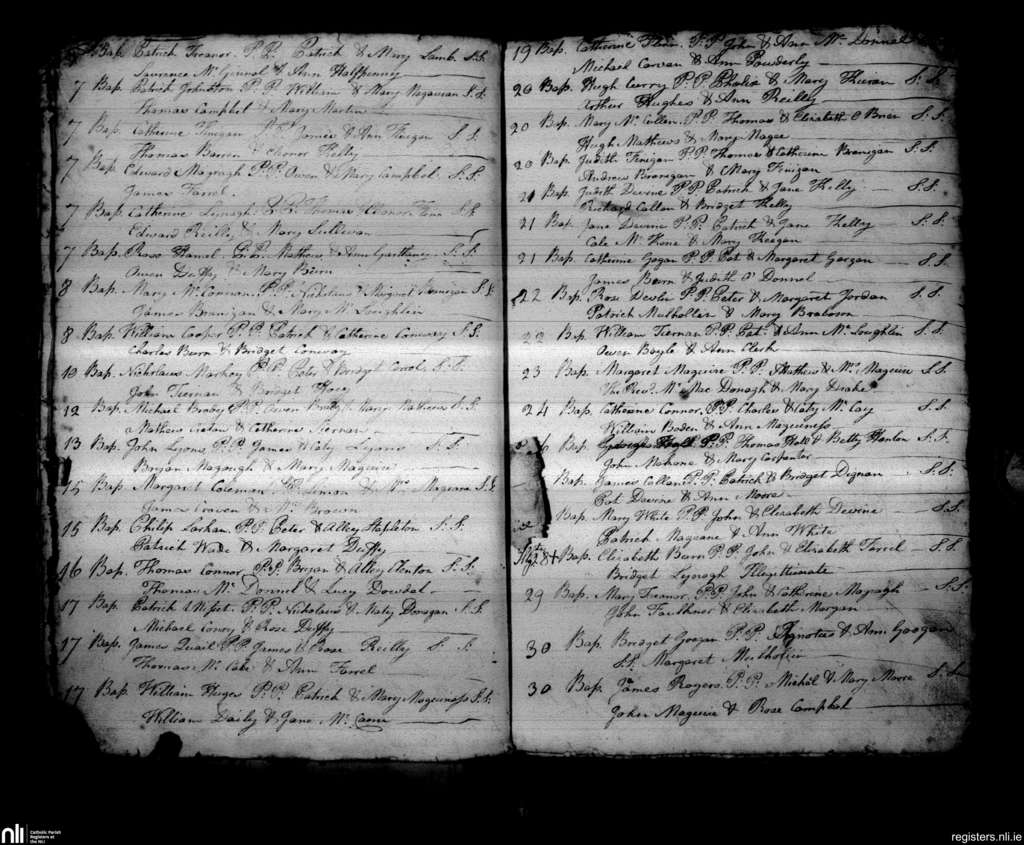 Bap. Patrick Treanor. P.P. Patrick & Mary Lamb. S.S.
Lawrence Mc & Ann Halfpenny
7 Bap. Patrick Johnston P.P. William & Mary S.S.
Thomas Campbel & Mary Martin
7 Bap. Catherine Finigan P.P. James & Ann S.S.
Thomas & Honor Kelly
7 Bap. Edward Magragh P.P. Owen & Mary Campbel. S.S.
James Farrel
7 Bap. Catherine Lynagh P.P. Thomas S.S.
Edward Reilly & Mary Sullivan
7 Bap. Ross P.P. Mathew & Ann S.S.
Owen Duffy & Mary Burn
8 Bap. Mary Mc P.P. Nicholaus & Margret Branigan S.S.
James Branigan & Mary Mc Loughlin
8 Bap. William Cooper P.P. Patrick & Catherine Conwary S.S.
Charles Burn & Bridget Conway
10 Bap. Nicholaus Markey P.P. Peter & Bridget Carrol S.S.
John Tiernan & Bridget
12 Bap. Michael Brady P.P. Owen Brady & Mary Mathews S.S.
Mathew & Catherine Tiernan
13 Bap. John Lyons P.P. James & Caty Lyons S.S.
Bryan Magough & Mary Maguire
15 Bap. Margaret Coleman & S.S.
James Craven & Mrs Brown
15 Bap. Philip Larkan. P.P. Peter & Alley Stapleton S.S.
Patrick Wade & Margaret Duffy
16 Bap. Thomas Connor P.P. Bryan & Alley S.S.
Thomas Mc Donnel & Lucy Dowdal
17 Bap. Patrick P.P. Nicholaus & Katy Donagan S.S.
Michael & Rose Duffy
17 Bap. James Quail P.P. James & Rose Reilly S.S.
Thomas Mc Cabe & Ann Farrel
17 Bap. William Huges P.P. Patrick & Mary Maguiness S.S.
William Daily & Jane Mc
19 Bap. Catherine P.P. John & Ann Mc Donnal
Michael Carvan & Ann Powderly
20 Bap. Hugh Curry P.P. & Mary S.S.
Arthur Hughes & Ann Reilly
20 Bap. Mary Mc Collen. P.P. Thomas & Elizabeth O Brien S.S.
Hugh Mathews & Mary Magee
20 Bap. Judith Finigan P.P. Thomas & Catherine Branigan S.S.
Andrew Branigan & Mary Finigan
21 Bap. Judith Devine P.P. Patrick & Jane Kelly S.S.
Richard Callan & Bridget Kelly
21 Bap. Jane Devine P.P. Patrick & Jane Kelley S.S.
Cole Mc & Mary Keegan
21 Bap. Catherine Gogan P.P. Pat & Margaret Gargan S.S.
James Barn & Judith O'Donnel
22 Bap. Rose Devlin P.P. Peter & Margaret Jordan S.S.
Patrick Mulhollan & Mary Brabason
22 Bap. William Tiernan P.P. Pat & Ann Mc Loughlin S.S.
Owen Boyle & Ann Clerk
23 Bap. Margaret Maguire P.P. Mathew & Mrs Maguire S.S.
The Revd. Mr Mac Donagh & Mary Drake
24 Bap. Catherine Connor. P.P. Charles & Caty Mc Coy S.S.
William Boden & Ann Maguiness
6 Bap. George Hall P.P. Thomas Hall & Betty Hanlon S.S.
John Mohone & Mary Carpenter
Bap. James Collan P.P. Patrick & Bridget Dignan S.S.
Pat Devine & Ann Moore
Bap. Mary White P.P. John & Elizabeth Devine S.S.
Patrick Nageane & Ann White
Bap. Elizabeth Barn P.P. John & Elizabeth Farrel S.S.
Bridget Lynagh Illegittimate
29 Bap. Mary Treanor P.P. John & Catherine Magragh S.S.
John Faulkner & Elizabeth Morgan
30 Bap. Bridget Googan P.P. Ignatius & Ann Googan
S.S. Margaret Mulhollin
30 Bap. James Rogers P.P. Michael & Mary Moore S.S.
John Maguire & Rose Campbel
nli
Catholic Parish
Registers at
the NLI
registers.nli.ie